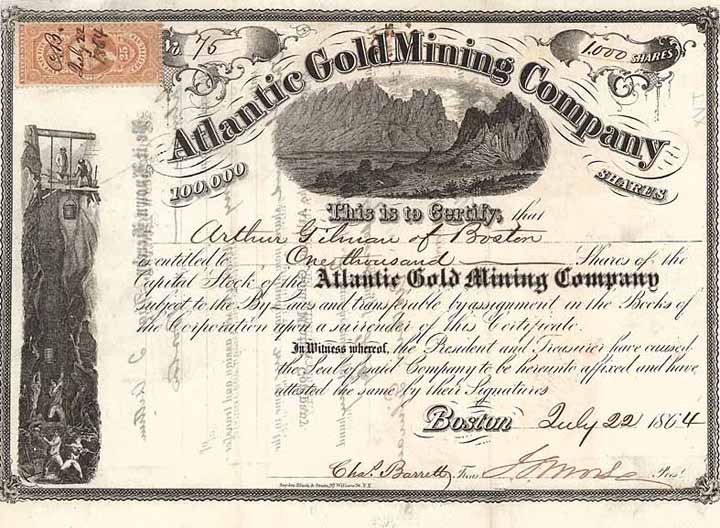 No 75
1,000 SHARES
Atlantic Gold Mining Company
100,000 SHARES
This is to Certify, that
Arthur Gilman of Boston
is entitled to One thousand Shares of the
Capital Stock of the Atlantic Gold Mining Company
Subject to the By-Laws and transferable by assignment in the Books of
the Corporation upon a surrender of this Certificate.
In Witness whereof, the President and Treasurer have caused
the Seal of said Company to be hereunto affixed and have
attested the same by their Signatures
Boston July 22 1864
Chas. Barrett Treas. Pres.
25
July 22
1864